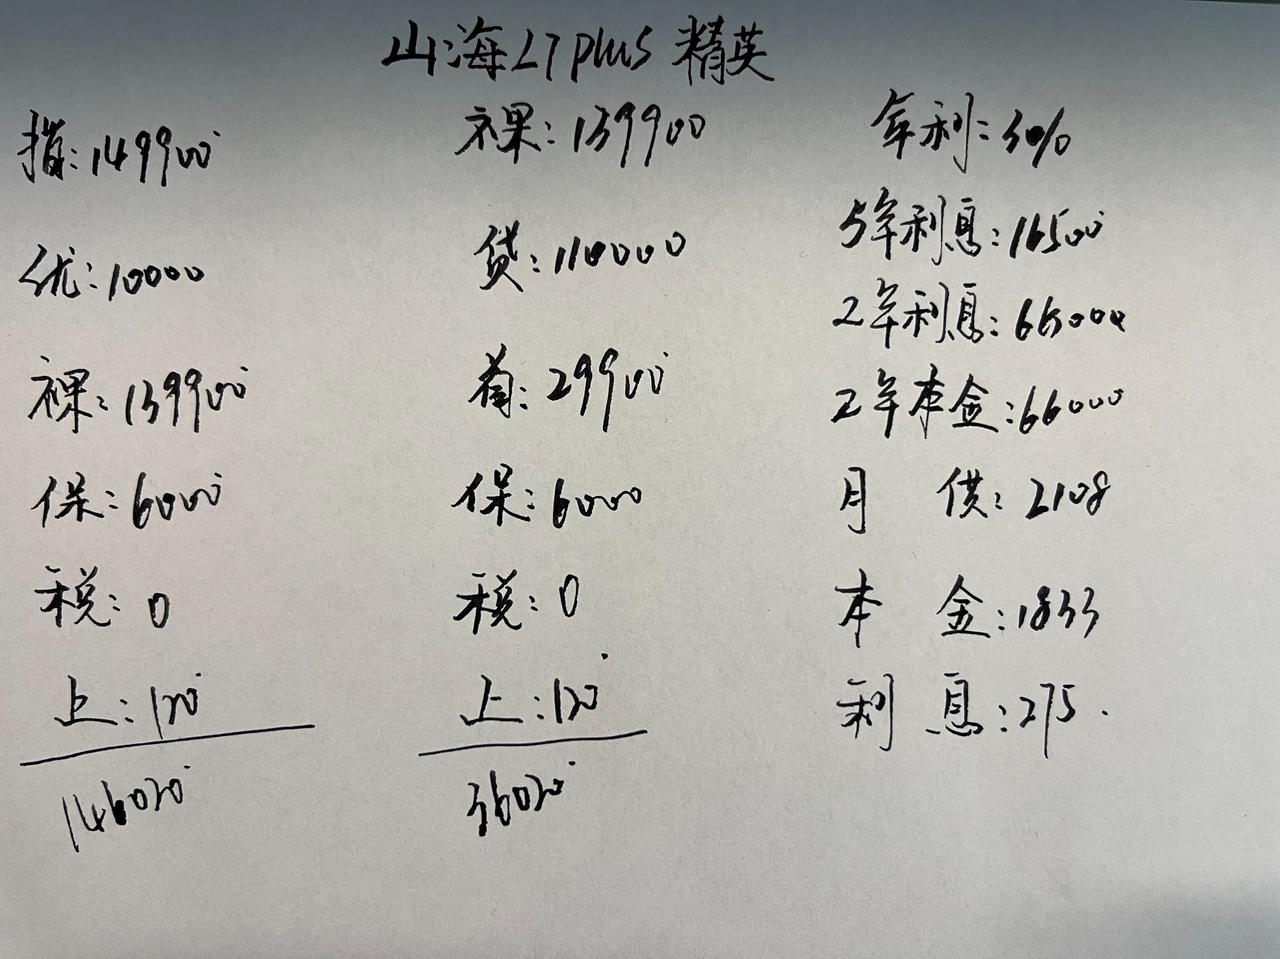 山海L7 plus 精英
指:149900
优:10000
裸:139900
保:6000
税:0
上:120
146020
裸:139900
贷:110000
首:29900
保:6000
税:0
上:120
36020
年利:3%
5年利息:16500
2年利息:6600
2年本金:66000
月供:2108
本金:1833
利息:275.